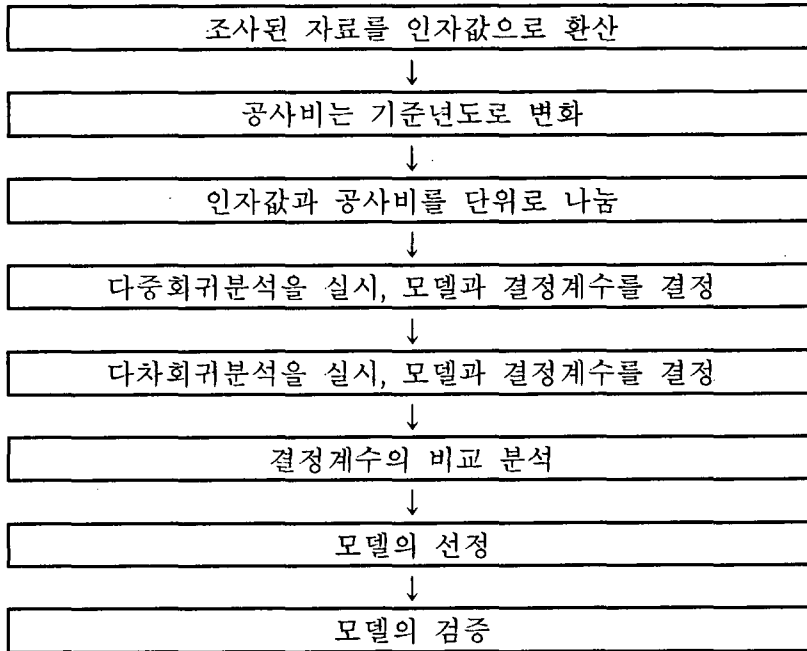 조사된 자료를 인자값으로 환산
↓
공사비는 기준년도로 변화
↓
인자값과 공사비를 단위로 나눔
↓
다중회귀분석을 실시, 모델과 결정계수를 결정
↓
다차회귀분석을 실시, 모델과 결정계수를 결정
↓
결정계수의 비교 분석
↓
모델의 선정
↓
모델의 검증